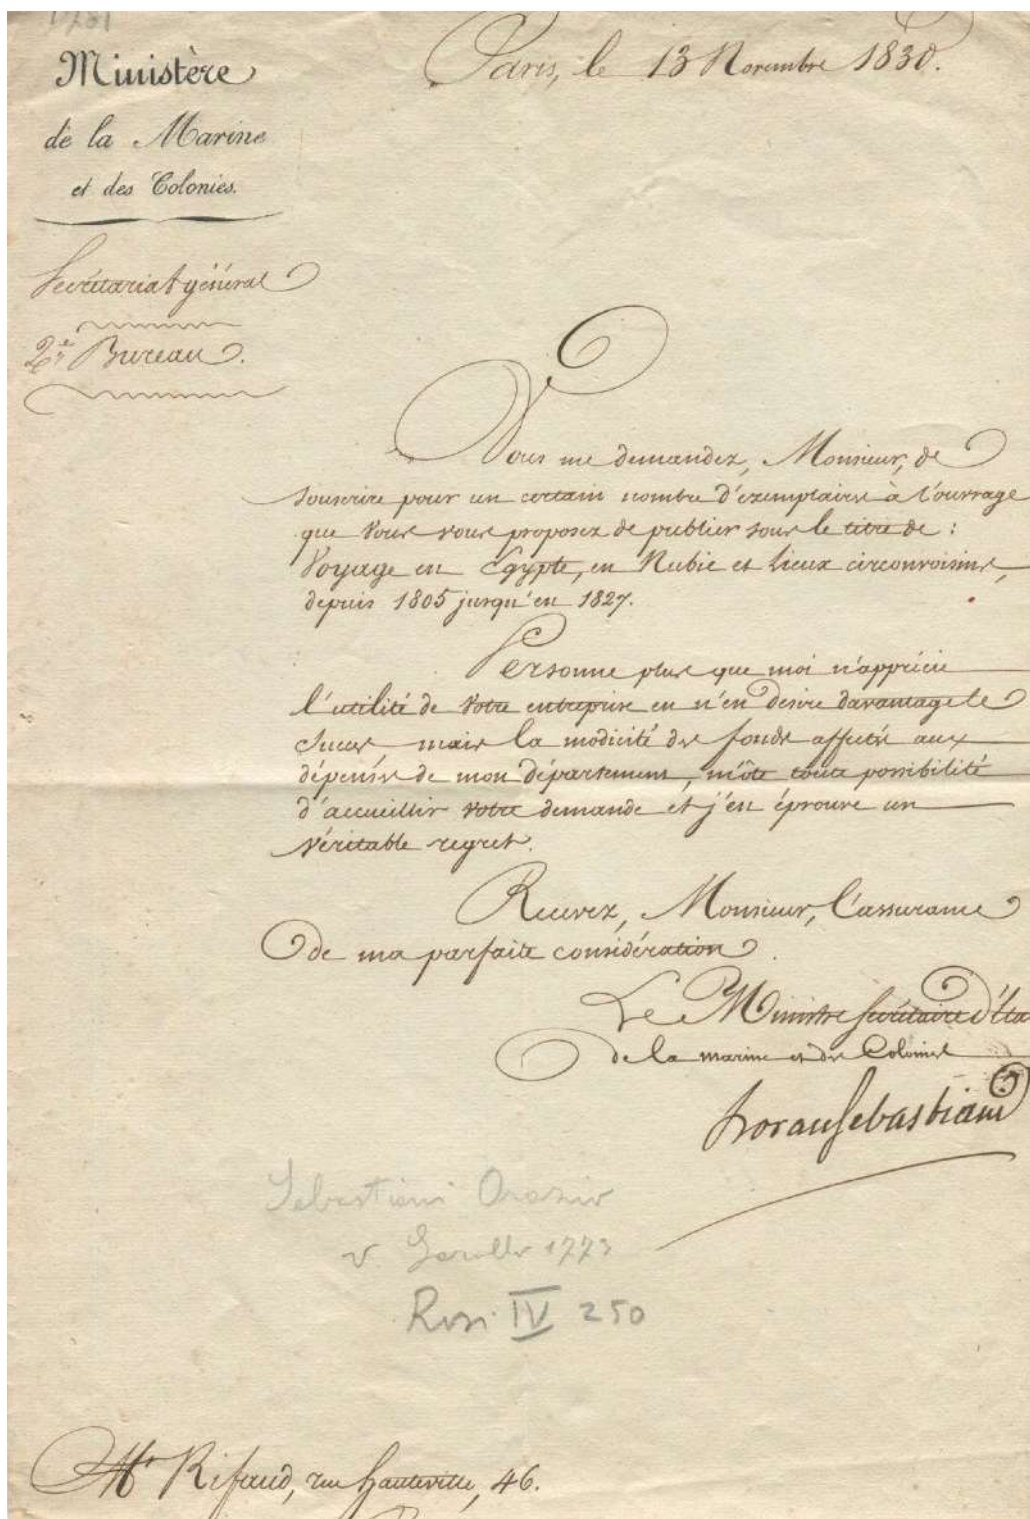 Ministère
de la Marine
et des Colonies.
Secrétariat général
2e Bureau.
Paris, le 13 Novembre 1830.
Vous me demandez, Monsieur, de
souscrire pour un certain nombre d'exemplaires à l'ouvrage
que vous vous proposez de publier sous le titre de :
Voyage en Egypte, en Nubie et lieux circonvoisins,
depuis 1805 jusqu'en 1827.
Personne plus que moi n'apprécie
l'utilité de votre entreprise en n'en desire davantage le
succès, mais la modicité des fonds affectés aux
dépenses de mon département, m'ôte toute possibilité
d'accueillir votre demande et j'en éprouve un
véritable regret.
Recevez, Monsieur, l'assurance
de ma parfaite considération.
Le Ministre Secrétaire d'Eta
de la marine et des Colonies
horace Sebastiani
Sebastiani Orazio
1773
IV 250
Mr Rifaud, rue hauteville, 46.